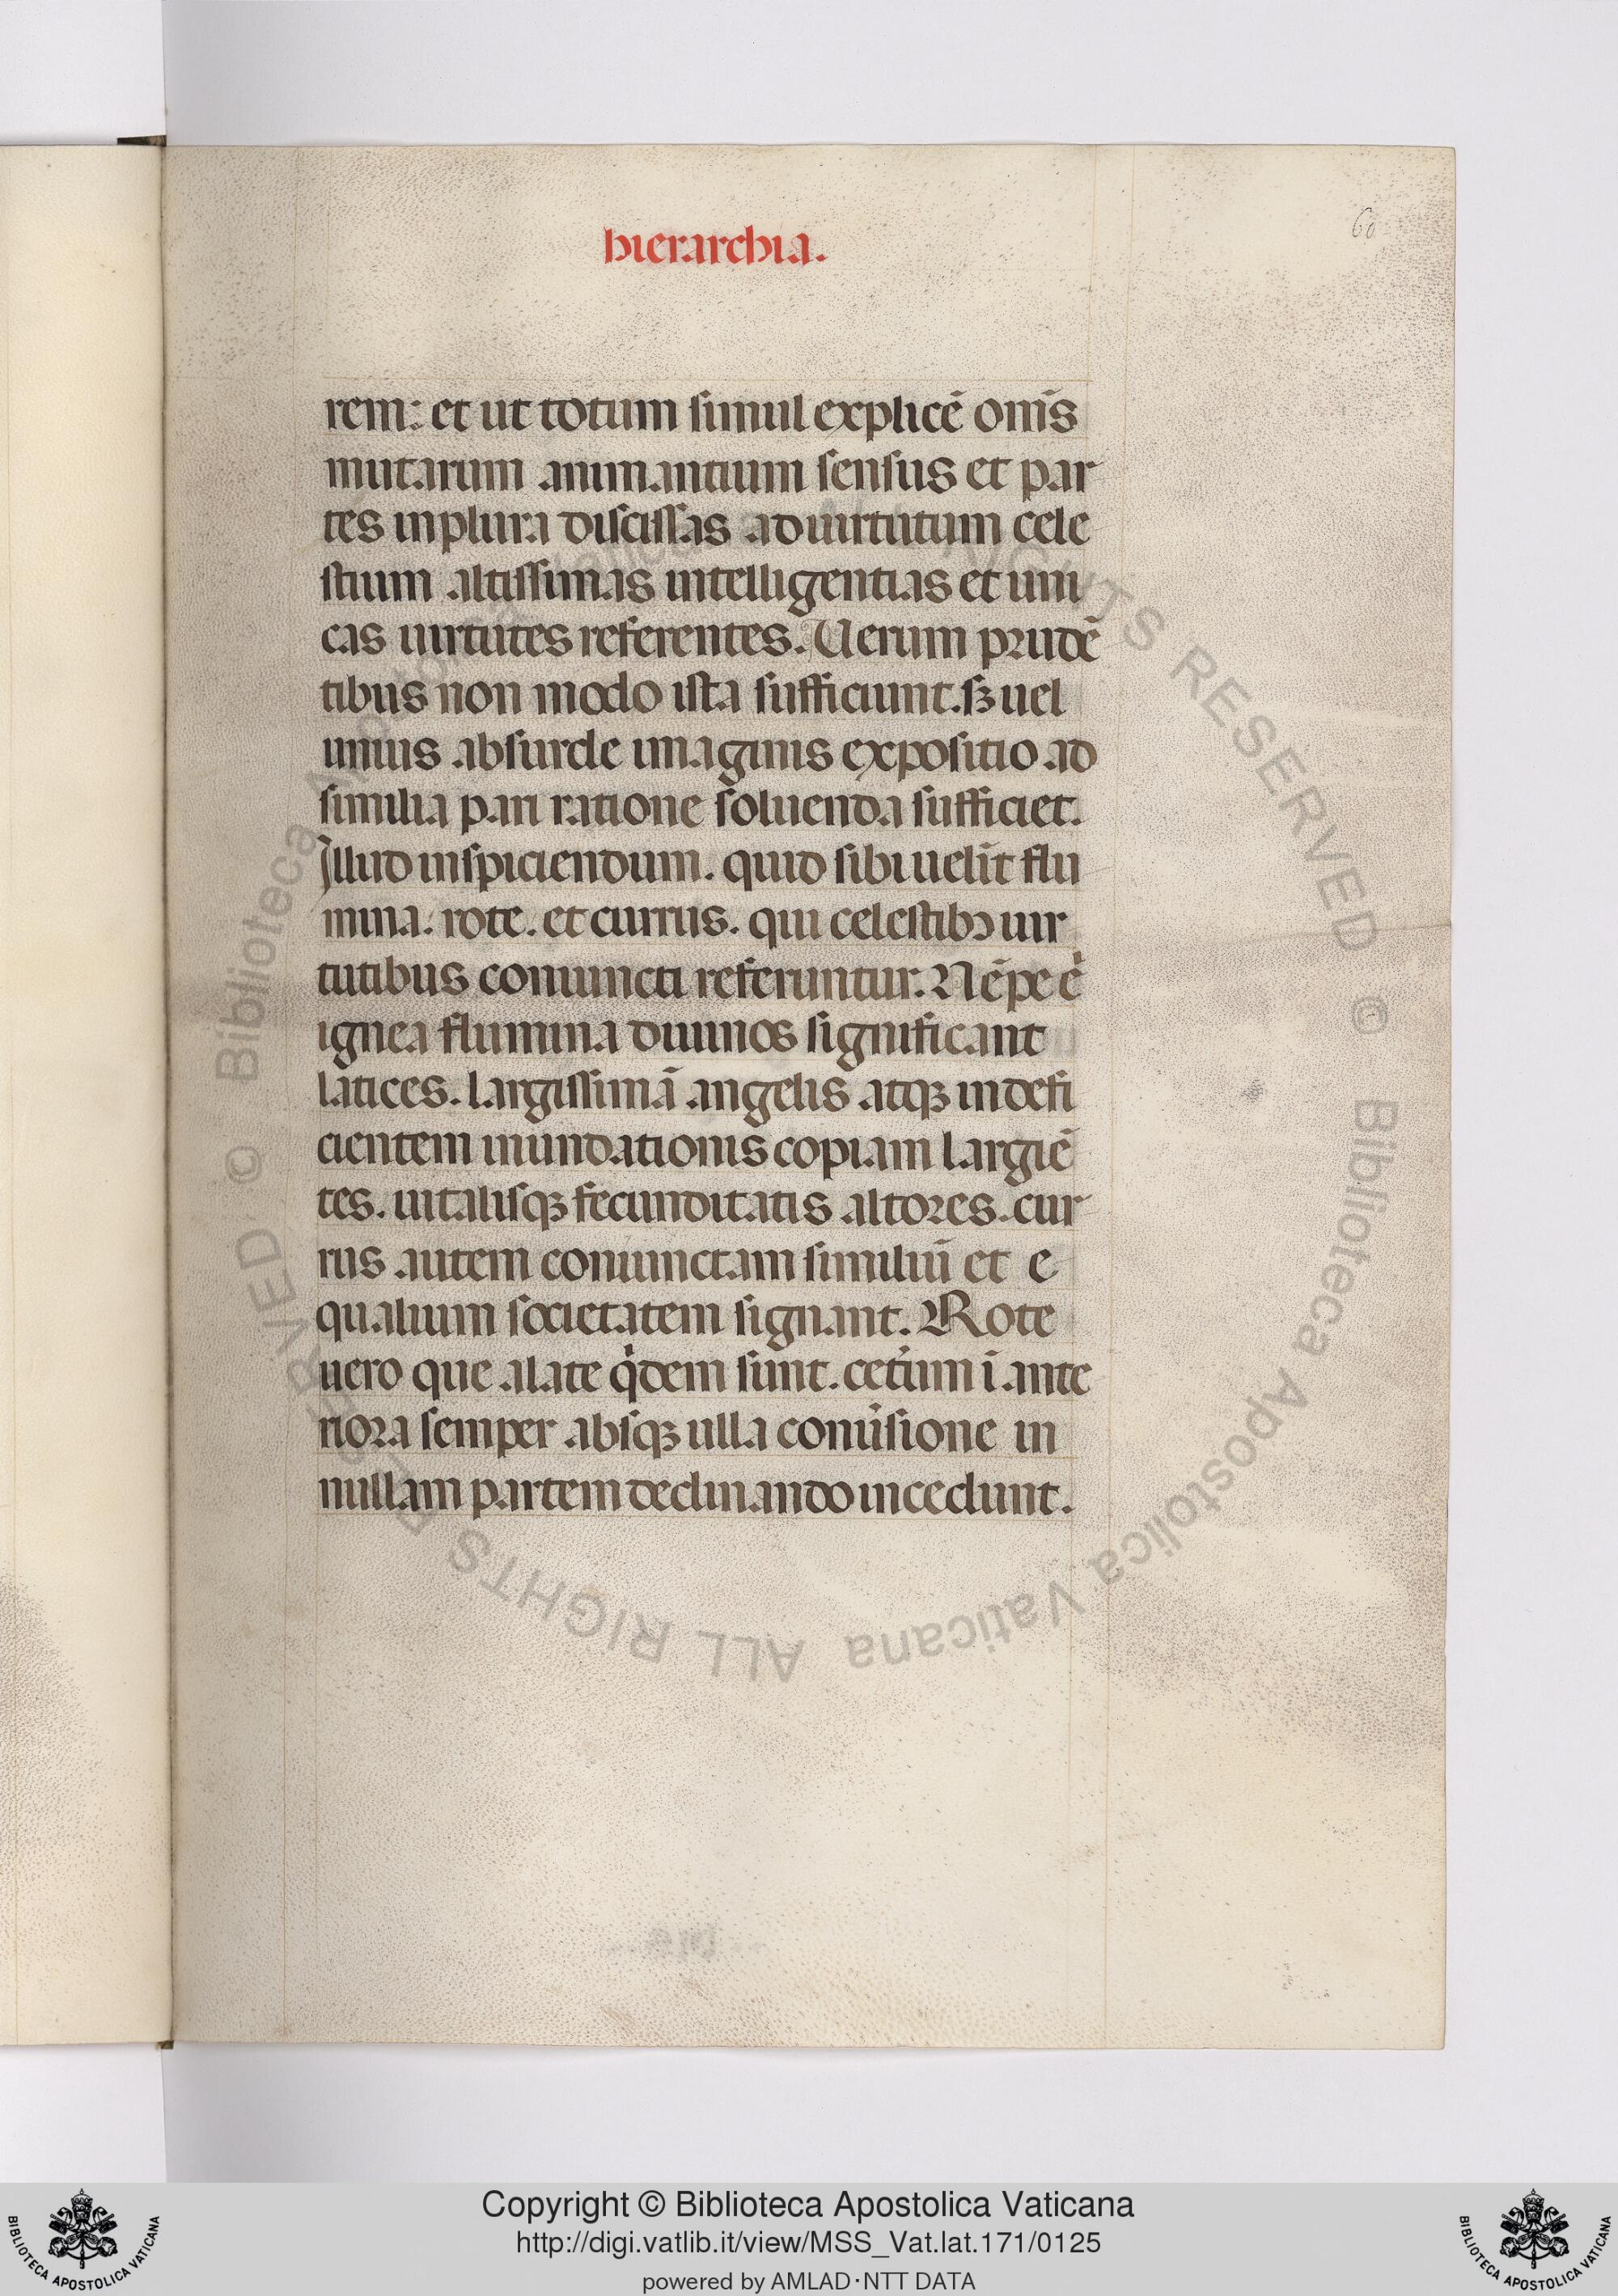 60
hierarchia.
rem: et ut totum simul explicē om̄s
mutarum animantium sensus et par
tes in plura discissas ad uirtutum cele
stium altissimas intelligentias et uni
cas uirtutes referentes. Uerum prudē
tibus non modo ista sufficiunt. sꝫ uel
unius absurde imaginis expositio ad
similia pari ratione soluenda sufficiet.
Illud inspiciendum. quid sibi uelīt flu
mina. rote. et currus. qui celestibꝰ uir
tutibus coniuncti referuntur. Nēpe
ignea flumina diuinos significant
latices. largissimā angelis atqꝫ indefi
cientem inundationis copiam largiē
tes. uitalisqꝫ fecunditatis altores. cur
rus autem coniunctam similiū et e
qualium societatem signant. Rote
uero que alate q̇dem sunt. cet̉um ī ante
riora semper absqꝫ ulla conu̇sione in
nullam partem declinando incedunt.
© Biblioteca Apostolica Vaticana ALL RIGHTS RESERVED © Biblioteca Apostolica Vaticana ALL RIGHTS RESERVED
Copyright © Biblioteca Apostolica Vaticana
http://digi.vatlib.it/view/MSS_Vat.lat.171/0125
powered by AMLAD·NTT DATA
BIBLIOTECA APOSTOLICA VATICANA
BIBLIOTECA APOSTOLICA VATICANA